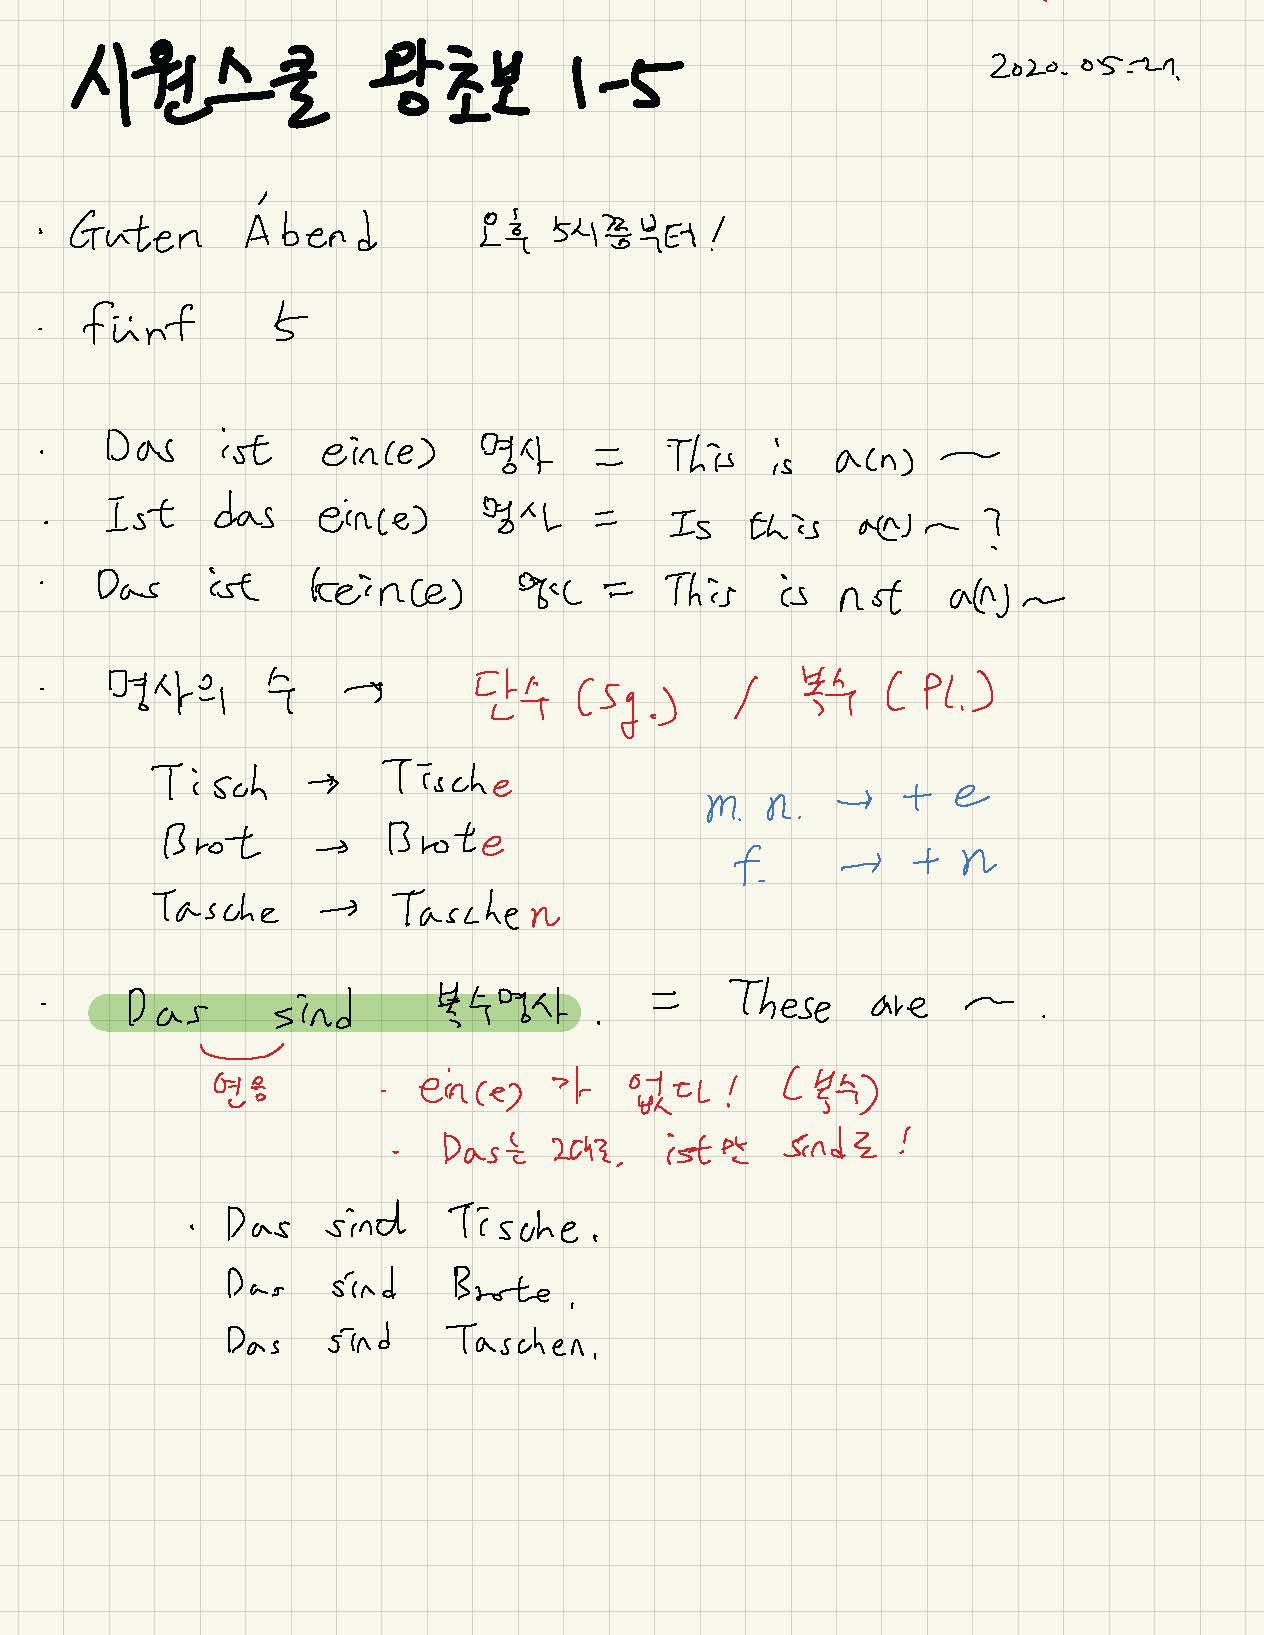 시원스쿨 왕초보 1-5
2020.05.27.
· Guten Ábend 오후 5시쯤부터!
· fünf 5
· Das ist ein(e) 명사 = This is a(n) ~
· Ist das ein(e) 명사 = Is this a(n) ~ ?
· Das ist kein(e) 명사 = This is not a(n) ~
· 명사의 수 → 단수 (Sg.) / 복수 (Pl.)
Tisch → Tische
m. n. → + e
Brot → Brote
f. → + n
Tasche → Taschen
· Das sind 복수명사. = These are ~ .
연음 · ein(e) 가 없다! (복수)
· Das는 그대로, ist만 sind로!
· Das sind Tische.
Das sind Brote.
Das sind Taschen.